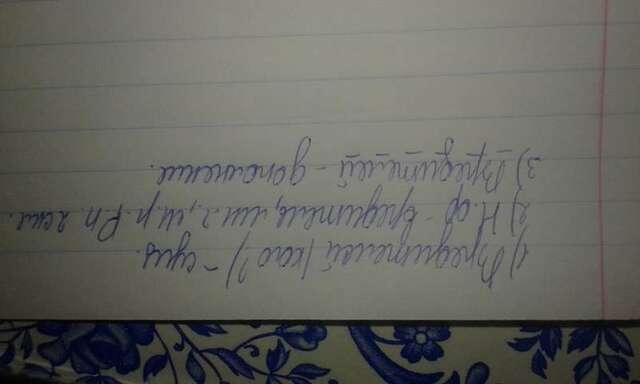 1) Вредителей (кого?) -
сущ.
2) Н. ф. - вредитель, мн. ч., м. р. Р. п. 2 скл.
3) Вредителей - дополнение.